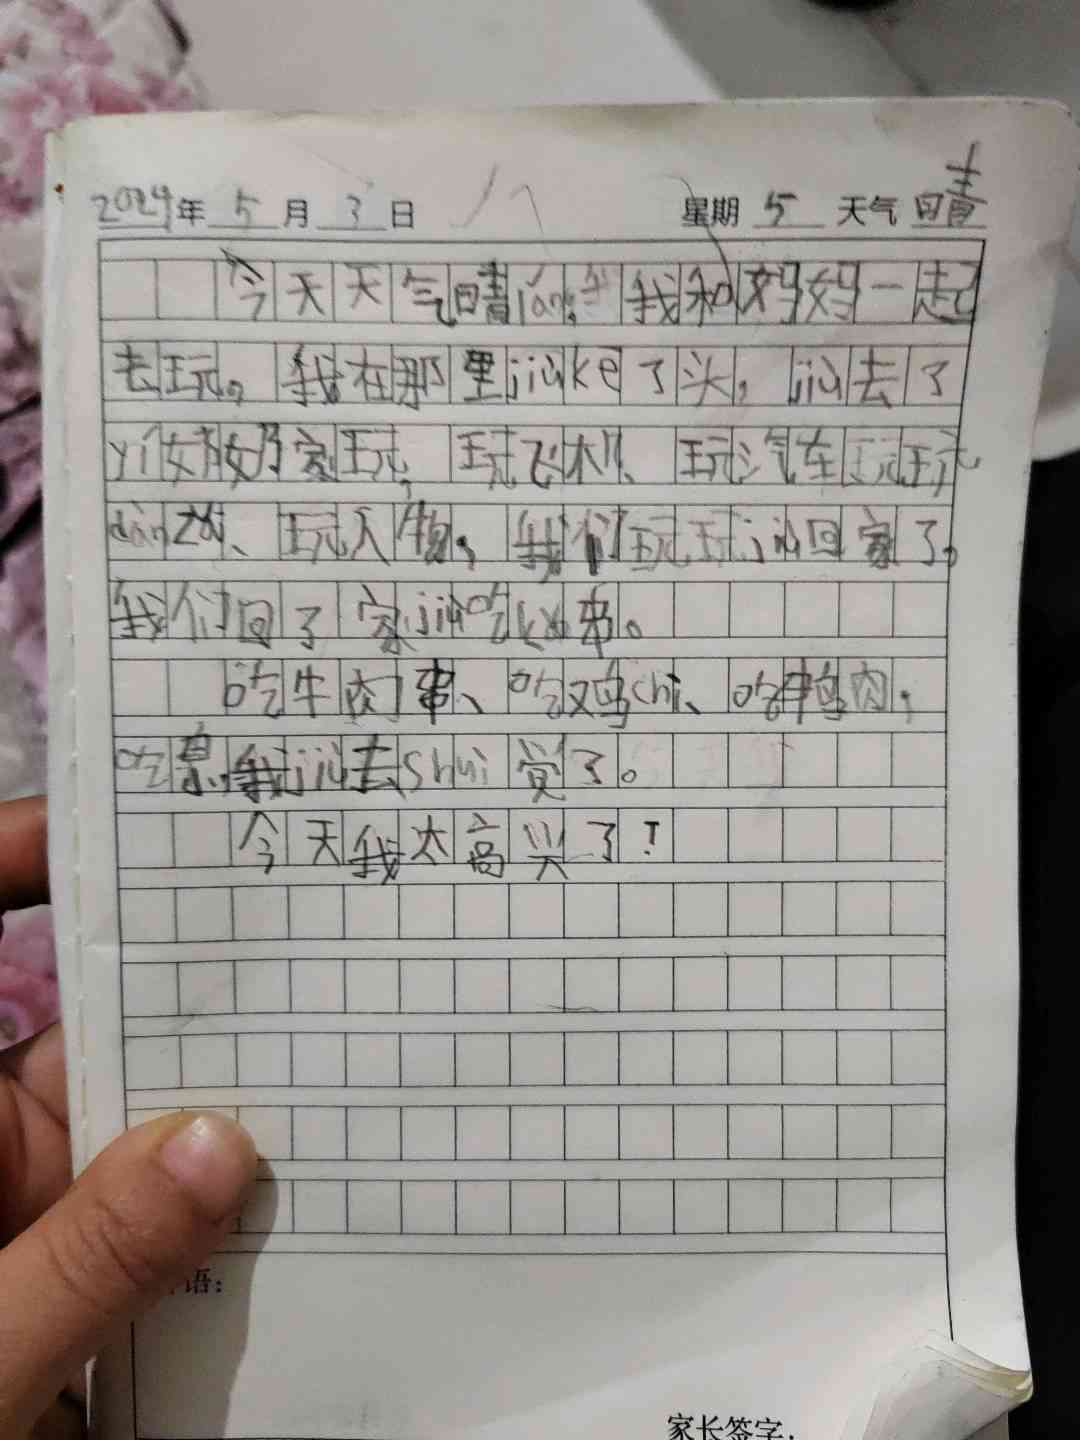 2024年 5 月 3 日 星期 5 天气 晴
今天天气晴lán，我和妈妈一起
去玩。我在那里jiùkē了头，jiù去了
yī个奶奶家玩，玩飞机、玩汽车、玩
dànzhū、玩人物。我们玩玩jiù回家了。
我们回了家jiù吃kǎo串。
吃牛肉串、吃鸡chì、吃鸭肉，
吃
我jiù去shuì觉了。
今天我太高兴了！
语：
家长签字：